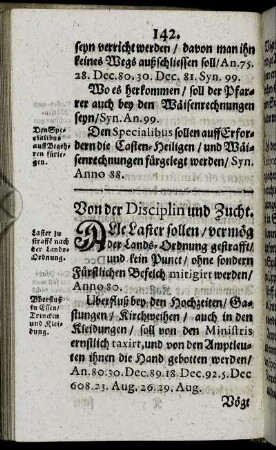 142.
seyn verricht werden / davon man ihn
keines Wegs außschliessen soll / An. 75.
28. Dec. 80. 30. Dec. 81. Syn. 99.
Wo es herkommen / soll der Pfar-
rer auch bey den Wäisenrechnungen
seyn / Syn. An. 99.
Den Spe-
cialibus
auff Begeh-
ren fürle-
gen.
Den Specialibus sollen auff Erfor-
dern die Casten-Heiligen / und Wäi-
senrechnungen fürgelegt werden / Syn.
Anno 88.
Von der Disciplin und Zucht.
Laster zu
straffe nach
der Lands-
Ordnung.
Alle Laster sollen / vermög
der Lands-Ordnung gestrafft /
und kein Punct / ohne sondern
Fürstlichen Befelch mitigirt werden /
Anno 80.
Überfluß
in Essen /
Trincken
und Klei-
dung.
Uberfluß bey den Hochzeiten / Ga-
stungen / Kirchweihen / auch in den
Kleidungen / soll von den Ministris
ernstlich taxirt, und von den Amptleu-
ten ihnen die Hand gebotten werden /
An. 80. 30. Dec. 89. 18. Dec. 92. 5. Dec
608. 23. Aug. 26. 29. Aug.
Vögt